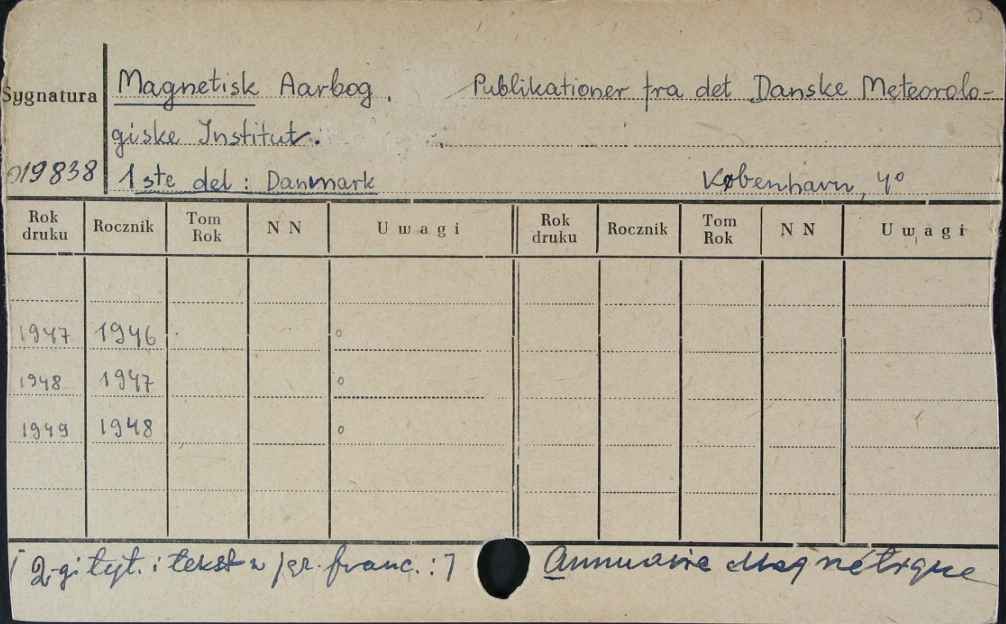 Magnetisk Aarbog. Publikationer fra det Danske Meteorolo-
Sygnatura
giske Institut.
019838 1ste del: Danmark København, 4°
Rok druku Rocznik Tom Rok NN Uwagi Rok druku Rocznik Tom Rok NN Uwagi
1947 1946 o
1948 1947 o
1949 1948 o
[2-gi tyt. i tekst w jęz. franc.:] Annuaire Magnétique